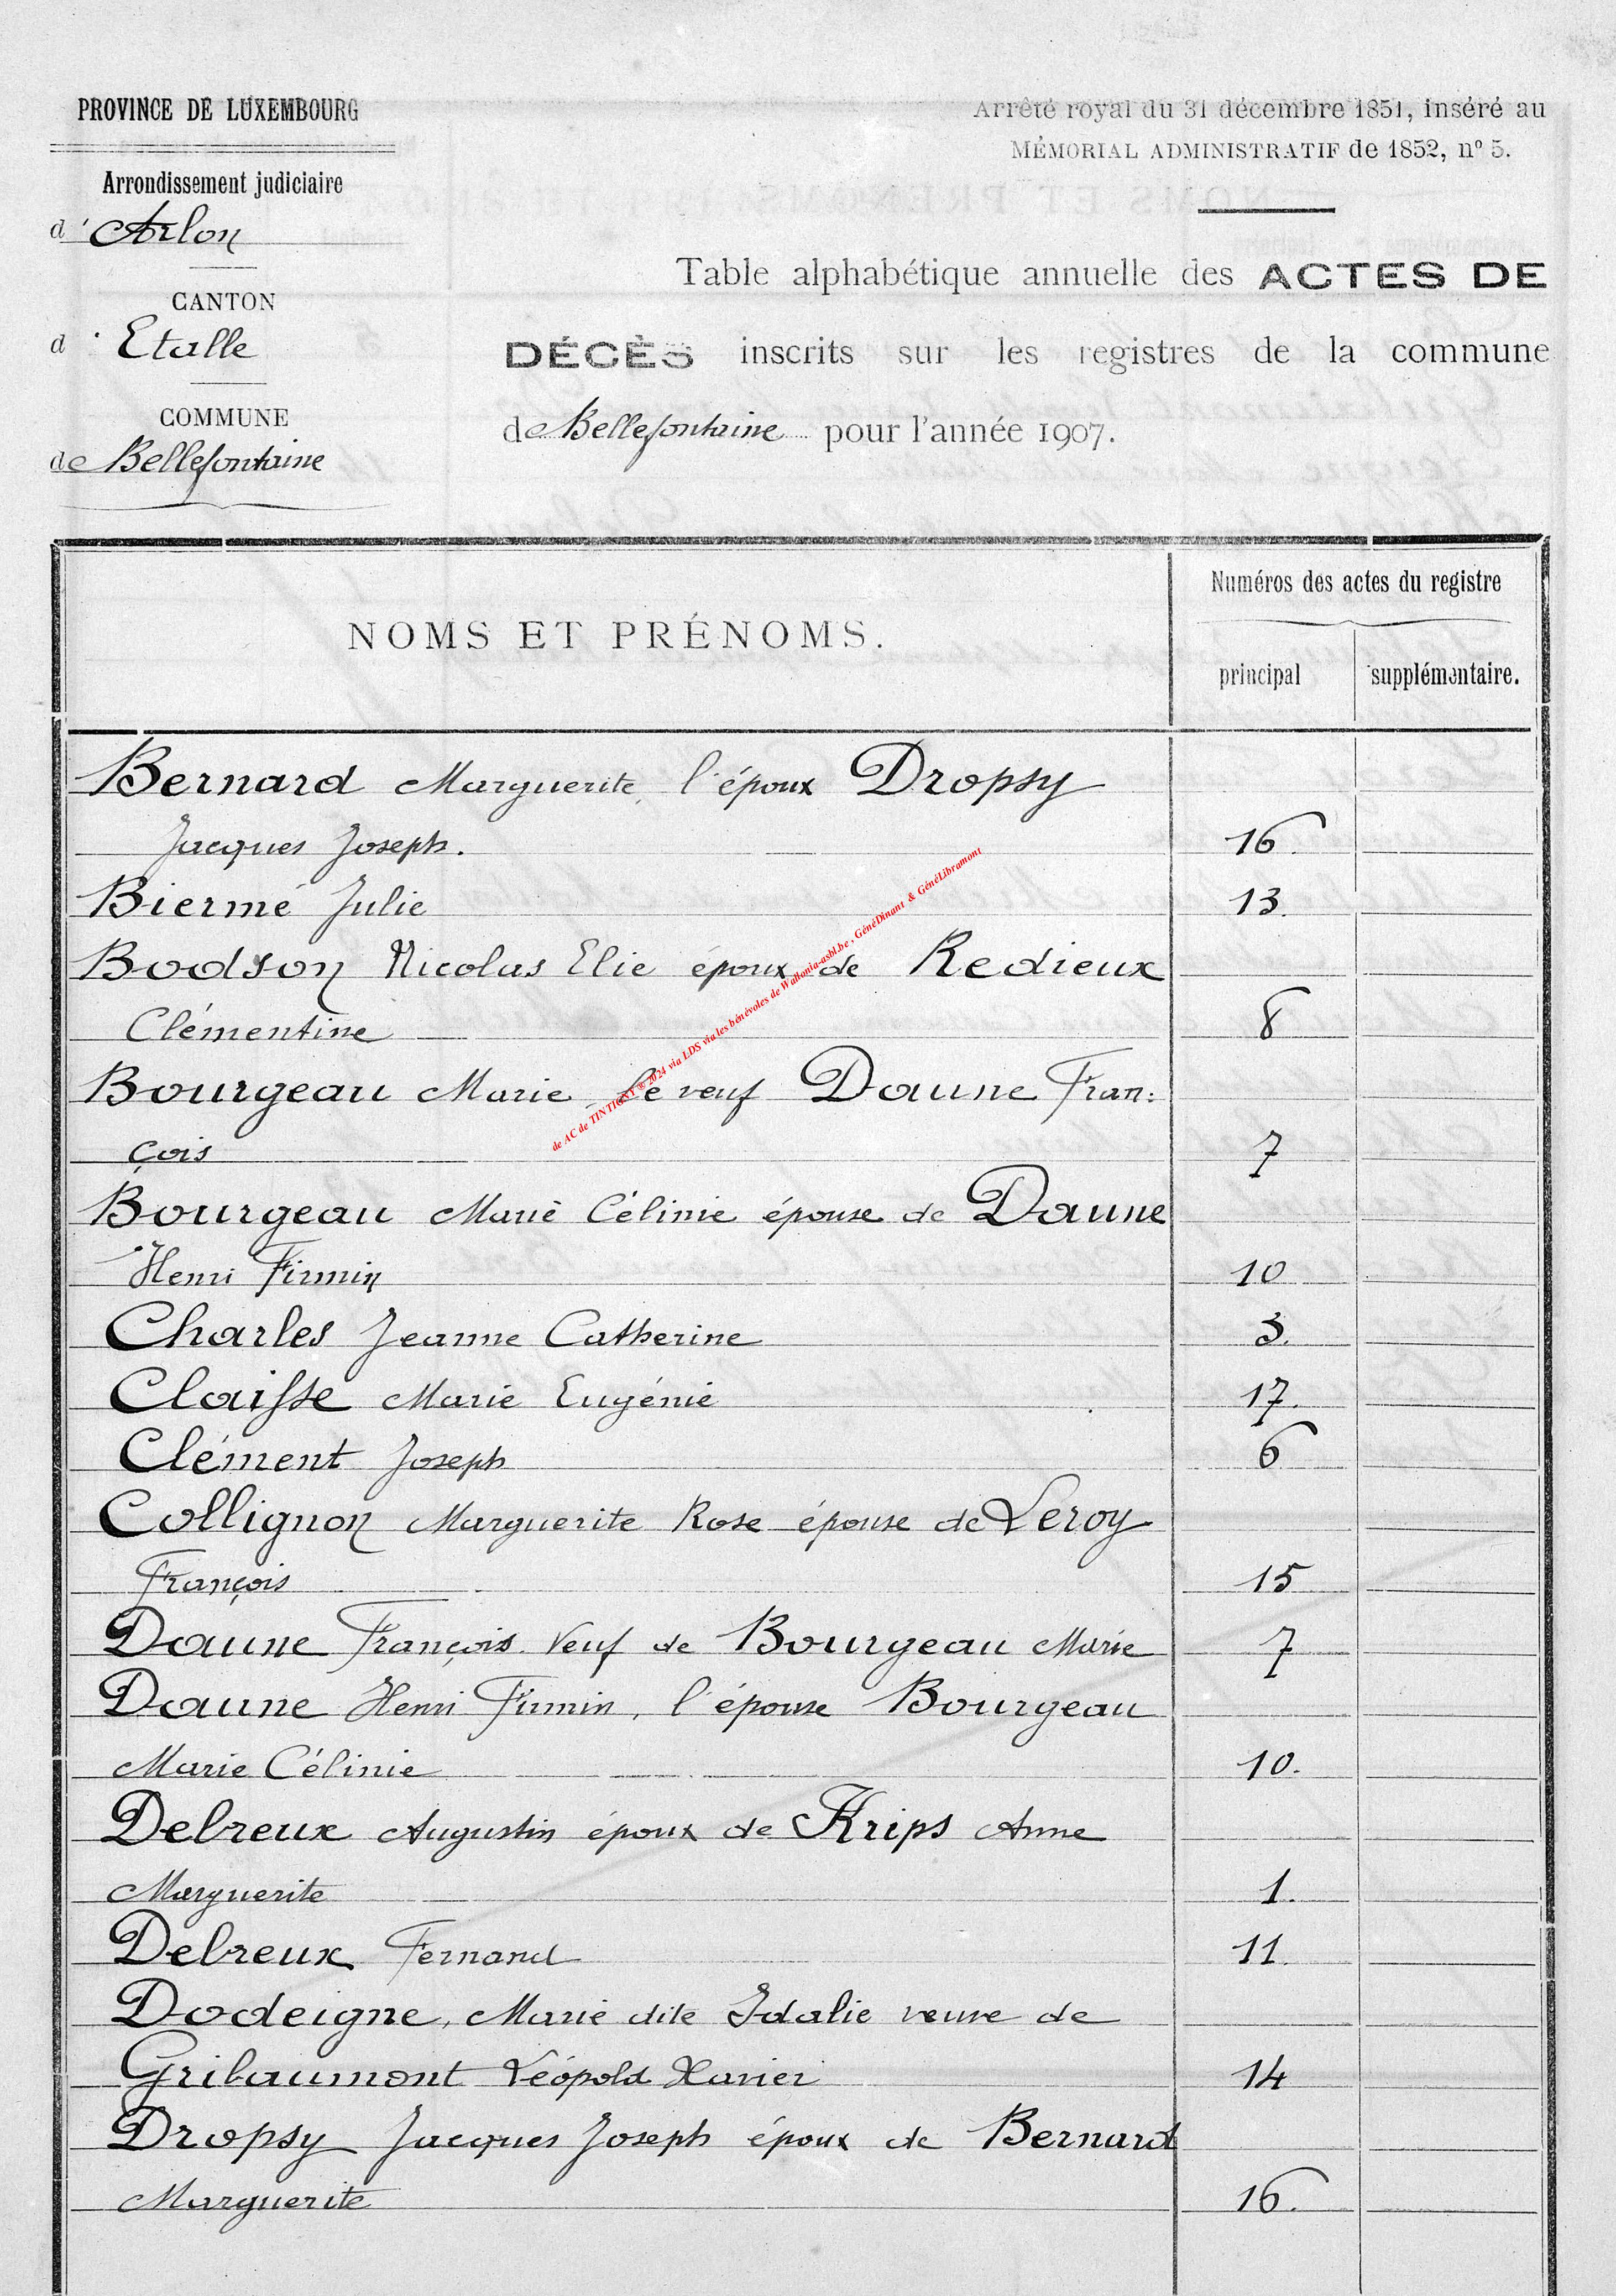 PROVINCE DE LUXEMBOURG
Arrondissement judiciaire
d'Arlon
CANTON
d'Etalle
COMMUNE
de Bellefontaine
Arrêté royal du 31 décembre 1851, inséré au
MÉMORIAL ADMINISTRATIF de 1852, nº 5.
Table alphabétique annuelle des ACTES DE
DÉCÈS inscrits sur les registres de la commune
de Bellefontaine pour l'année 1907.
NOMS ET PRÉNOMS.
Numéros des actes du registre
principal supplémentaire.
Bernard Marguerite, l'époux Dropsy
Jacques Joseph. 16.
Biermé Julie 13.
Bodson Nicolas Elie époux de Redieux
Clémentine 8
Bourgeau Marie, le veuf Daune Fran:
çois 7
Bourgeau Marie Célinie épouse de Daune
Henri Firmin 10
Charles Jeanne Catherine 3.
Claisse Marie Eugénie 17.
Clément Joseph 6
Collignon Marguerite Rose épouse de Leroy
François 15
Daune François. Veuf de Bourgeau Marie 7
Daune Henri Firmin, l'épouse Bourgeau
Marie Célinie 10.
Delreux Augustin époux de Krips Anne
Marguerite 1.
Delreux Fernand 11.
Dodeigne, Marie dite Idalie veuve de
Gribaumont Léopold Xavier 14
Dropsy Jacques Joseph époux de Bernard
Marguerite 16.
de AC de TINTIGNY ® 2024 via LDS via les bénévoles de Wallonia-asbl.be, GénéDinant & GénéLibramont